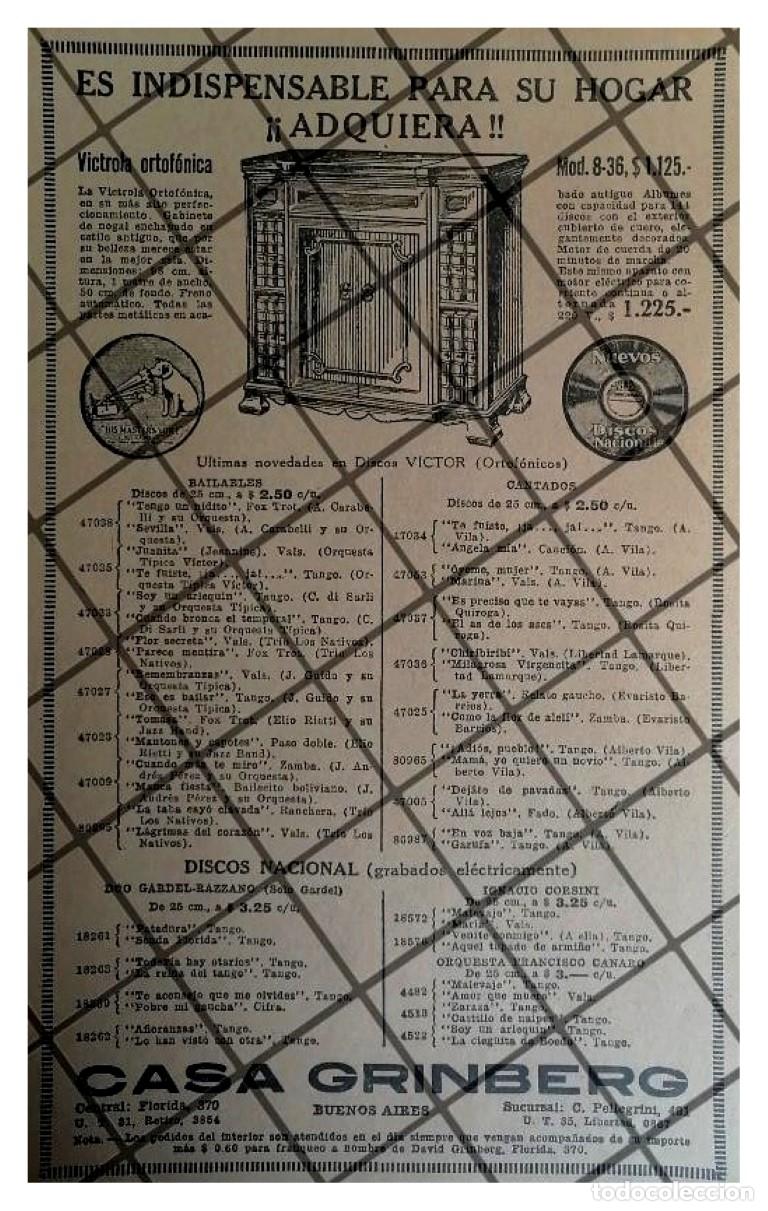 ES INDISPENSABLE PARA SU HOGAR
¡¡ADQUIERA!!
Victrola ortofónica
La Victrola Ortofónica,
en su más alto perfec-
cionamiento. Gabinete
de nogal enchapado en
estilo antiguo, que por
su belleza merece estar
en la mejor sala. Di-
mensiones: 98 cm. al-
tura, 1 metro de ancho,
50 cm. de fondo. Freno
automático. Todas las
partes metálicas en aca-
Mod. 8-36, $ 1.125.-
bado antiguo Albumes
con capacidad para 144
discos con el exterior
cubierto de cuero, ele-
gantemente decorados
Motor de cuerda de 20
minutos de marcha.
Este mismo aparato con
motor eléctrico para co-
rriente continua o al-
ternada
220 V., $ 1.225.-
"HIS MASTER'S VOICE"
Nuevos
Discos
Nacionales
Ultimas novedades en Discos VICTOR (Ortofónicos)
BAILABLES
Discos de 25 cm., a $ 2.50 c/u.
47038 "Tengo un nidito". Fox Trot. (A. Carabe-
lli y su Orquesta).
"Sevilla". Vals. (A. Carabelli y su Or-
questa).
47035 "Juanita" (Jeannine). Vals. (Orquesta
Típica Víctor).
"Te fuiste, ¡ja..., ja!..." Tango. (Or-
questa Típica Víctor).
47033 "Soy un arlequín". Tango. (C. di Sarli
y su Orquesta Típica).
"Cuando bronca el temporal". Tango. (C.
Di Sarli y su Orquesta Típica)
47028 "Flor secreta". Vals. (Trío Los Nativos).
"Parece mentira". Fox Trot. (Trío Los
Nativos).
47027 "Remembranzas". Vals. (J. Guido y su
Orquesta Típica).
"Eso es bailar". Tango. (J. Guido y su
Orquesta Típica)
47023 "Tomasa". Fox Trot. (Elio Rietti y su
Jazz Band).
"Mantones y capotes". Paso doble. (Elio
Rietti y su Jazz Band).
47009 "Cuando más te miro". Zamba. (J. An-
drés Pérez y su Orquesta).
"Manca fiesta". Bailecito boliviano. (J.
Andrés Pérez y su Orquesta).
"La taba cayó clavada". Ranchera. (Trío
Los Nativos).
"Lágrimas del corazón". Vals. (Trío Los
Nativos).
CANTADOS
Discos de 25 cm., a $ 2.50 c/u.
47034 "Te fuiste, ¡ja..., ja!..." Tango. (A.
Vila).
"Angela mía". Canción. (A. Vila).
"Óyeme, mujer". Tango. (A. Vila).
"Marina". Vals. (A. Vila).
47037 "Es preciso que te vayas". Tango. (Rosita
Quiroga).
"El as de los ases". Tango. (Rosita Qui-
roga).
47036 "Chiribiribí". Vals. (Libertad Lamarque).
"Milagrosa Virgencita". Tango. (Liber-
tad Lamarque).
47025 "La yerra". Relato gaucho. (Evaristo Ba-
rrios).
"Como la flor de alelí". Zamba. (Evaristo
Barrios).
80965 "¡Adiós, pueblo!" Tango. (Alberto Vila).
"Mamá, yo quiero un novio". Tango. (Al-
berto Vila).
47005 "Dejáte de pavadas". Tango. (Alberto
Vila).
"Allá lejos". Fado. (Alberto Vila).
80987 "En voz baja". Tango. (A. Vila).
"Garufa". Tango. (A. Vila).
DISCOS NACIONAL (grabados eléctricamente)
DUO GARDEL-RAZZANO (Solo Gardel)
De 25 cm., a $ 3.25 c/u.
18261 "Patadura". Tango.
"Senda florida". Tango.
18263 "Todavía hay otarios". Tango.
"La reina del tango". Tango.
"Te aconsejo que me olvides". Tango.
"Pobre mi gaucha". Cifra.
18262 "Añoranzas". Tango.
"Lo han visto con otra". Tango.
IGNACIO CORSINI
De 25 cm., a $ 3.25 c/u.
18572 "Malevaje". Tango.
"María". Vals.
18570 "Venite conmigo". (A ella). Tango.
"Aquel tapado de armiño". Tango.
ORQUESTA FRANCISCO CANARO
De 25 cm., a $ 3.— c/u.
4482 "Malevaje". Tango.
"Amor que muere". Vals.
4513 "Zaraza". Tango.
"Castillo de naipes". Tango.
4522 "Soy un arlequín". Tango.
"La cieguita de Boedo". Tango.
CASA GRINBERG
Central: Florida, 370
U. T. 31, Retiro, 3854
BUENOS AIRES
Sucursal: C. Pellegrini, 481
U. T. 35, Libertad, 0867
Nota.—Los pedidos del interior son atendidos en el día siempre que vengan acompañados de su importe
más $ 0.60 para franqueo a nombre de David Grinberg, Florida, 370.
todocoleccion